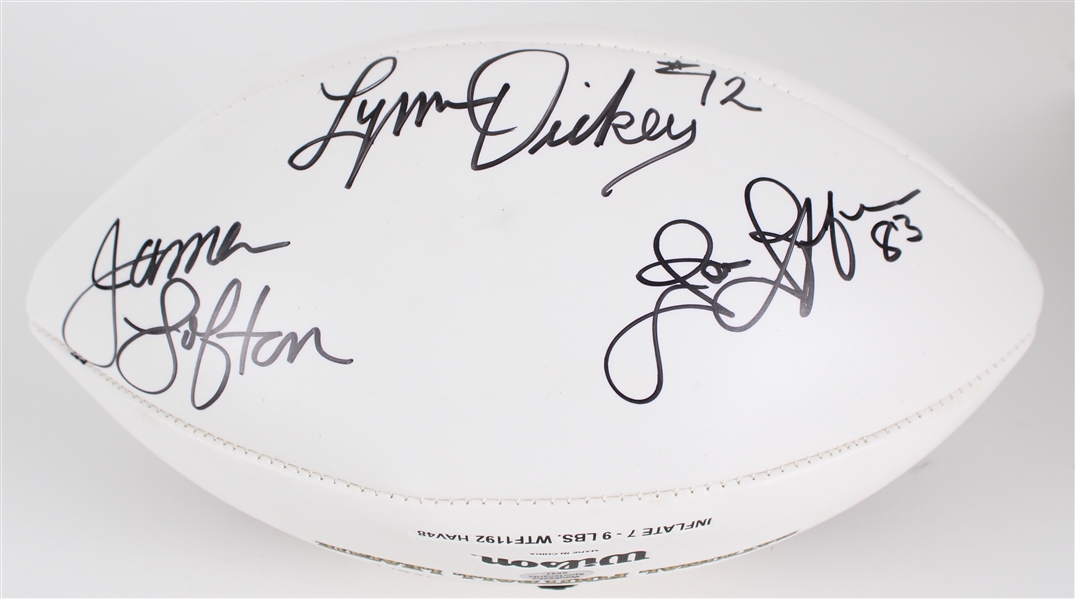 Lynn Dickey #12
James
Lofton
83
INFLATE 7 - 9 LBS. WTF1192 HAV48
MADE IN CHINA
Wilson